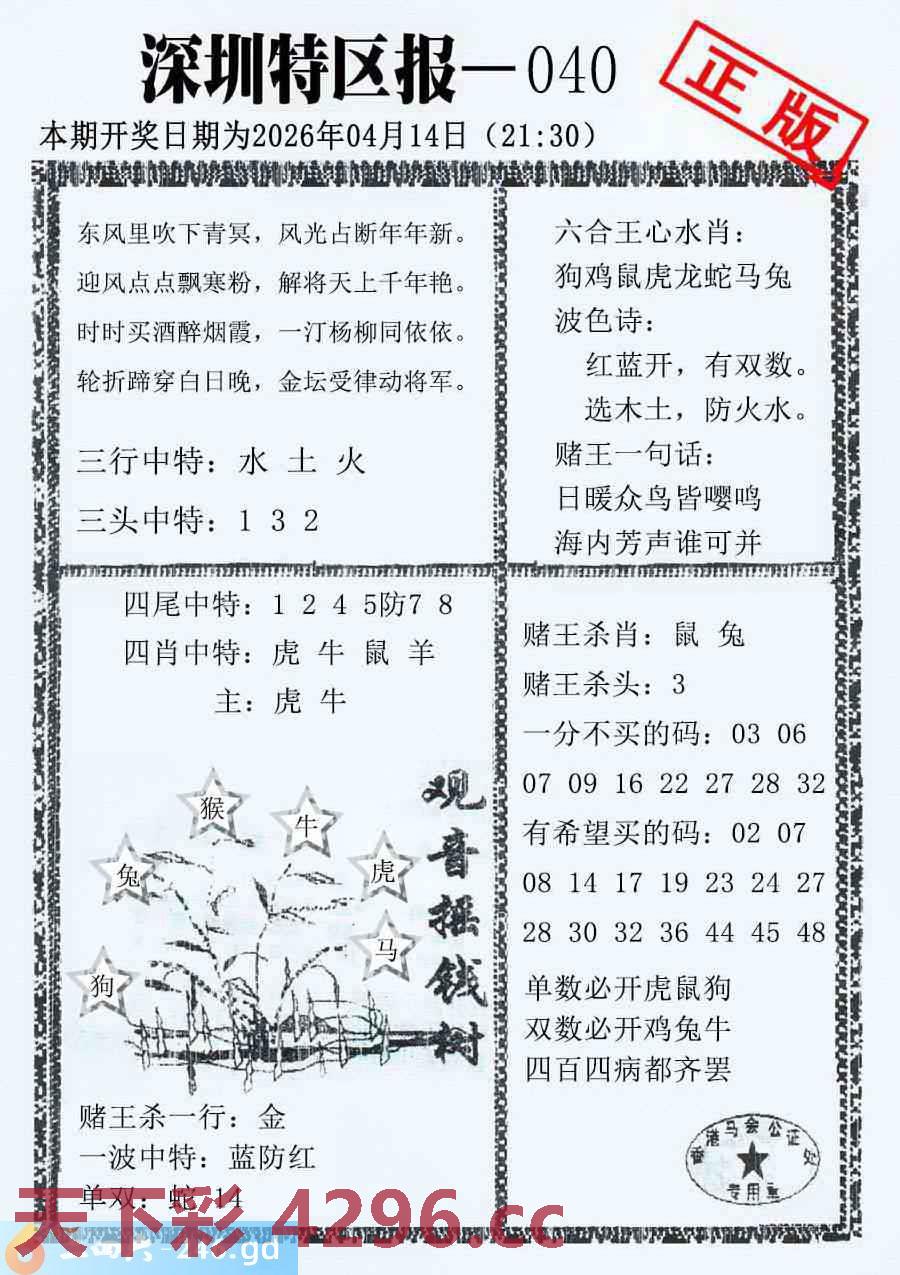 深圳特区报—040
正版
本期开奖日期为2026年04月14日（21:30）
东风里吹下青冥，风光占断年年新。
迎风点点飘寒粉，解将天上千年艳。
时时买酒醉烟霞，一汀杨柳同依依。
轮折蹄穿白日晚，金坛受律动将军。
三行中特：水 土 火
三头中特：1 3 2
六合王心水肖：
狗鸡鼠虎龙蛇马兔
波色诗：
红蓝开，有双数。
选木土，防火水。
赌王一句话：
日暖众鸟皆嘤鸣
海内芳声谁可并
四尾中特：1 2 4 5防7 8
四肖中特：虎 牛 鼠 羊
主：虎 牛
猴
牛
兔
虎
马
狗
观音摇钱树
赌王杀一行：金
一波中特：蓝防红
单双：蛇 14
赌王杀肖：鼠 兔
赌王杀头：3
一分不买的码：03 06
07 09 16 22 27 28 32
有希望买的码：02 07
08 14 17 19 23 24 27
28 30 32 36 44 45 48
单数必开虎鼠狗
双数必开鸡兔牛
四百四病都齐罢
香港马会公证处
专用章
天下彩 4296.cc